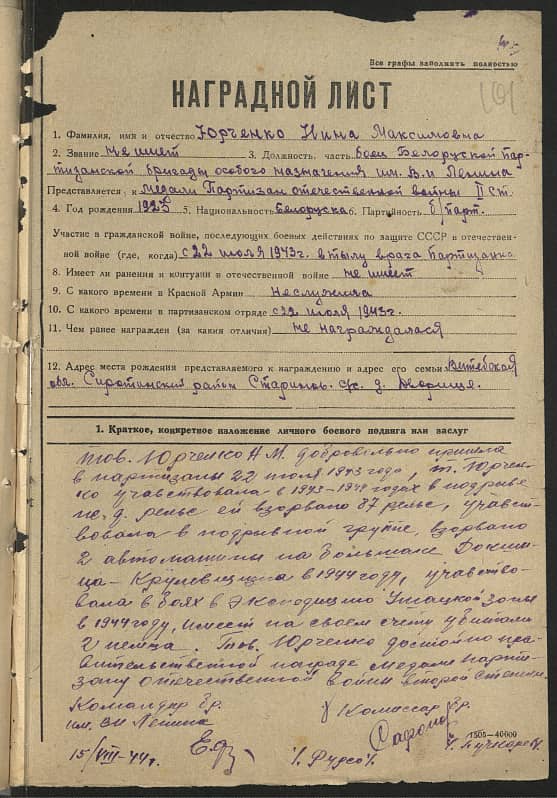 Все графы заполнить полностью
НАГРАДНОЙ ЛИСТ
1. Фамилия, имя и отчество Юрченко Нина Максимовна
2. Звание Не имеет 3. Должность, часть боец Белоруской Пар-
тизанской бригады особого назначения им. В.И Ленина
Представляется к медали Партизан отечественной войны II ст.
4. Год рождения 1925 5. Национальность белоруска 6. Партийность б/парт.
Участие в гражданской войне, последующих боевых действиях по защите СССР в отечествен-
ной войне (где, когда) с 22 июля 1943г. в тылу врага Партизанка
8. Имеет ли ранения и контузии в отечественной войне не имеет
9. С какого времени в Красной Армии неслужила
10. С какого времени в партизанском отряде с 22 июля 1943г.
11. Чем ранее награжден (за какия отличия) не награждалася
12. Адрес места рождения представляемого к награждению и адрес его семьи Витебская
обл. Сиротинский район Стариков. с/с. д. Дворище.
1. Краткое, конкретное изложение личного боевого подвига или заслуг
Тов. Юрченко Н М. добровольно пришла
в партизаны 22 июля 1943 года, т. Юрчен-
ко учавствовала в 1943-1944 годах в подрыве
ж.д. рельс ей взорвано 87 рельс, учавст-
вовала в подрывной группе, взорвано
2 автомашины на большаке Докши-
ца-Крулевщина в 1944 году, учавство-
вала в боях в Экспедицию Ушацкой зоны
в 1944 году, имеет на своем счету убитыми
2 немца. Тов. Юрченко достойно пра-
вительственной награде медали Парти-
зану отечественной войны второй степени.
Командир бр.
им. ВИ Ленина
Комиссар бр.
15/VIII-44г.
1505-40000